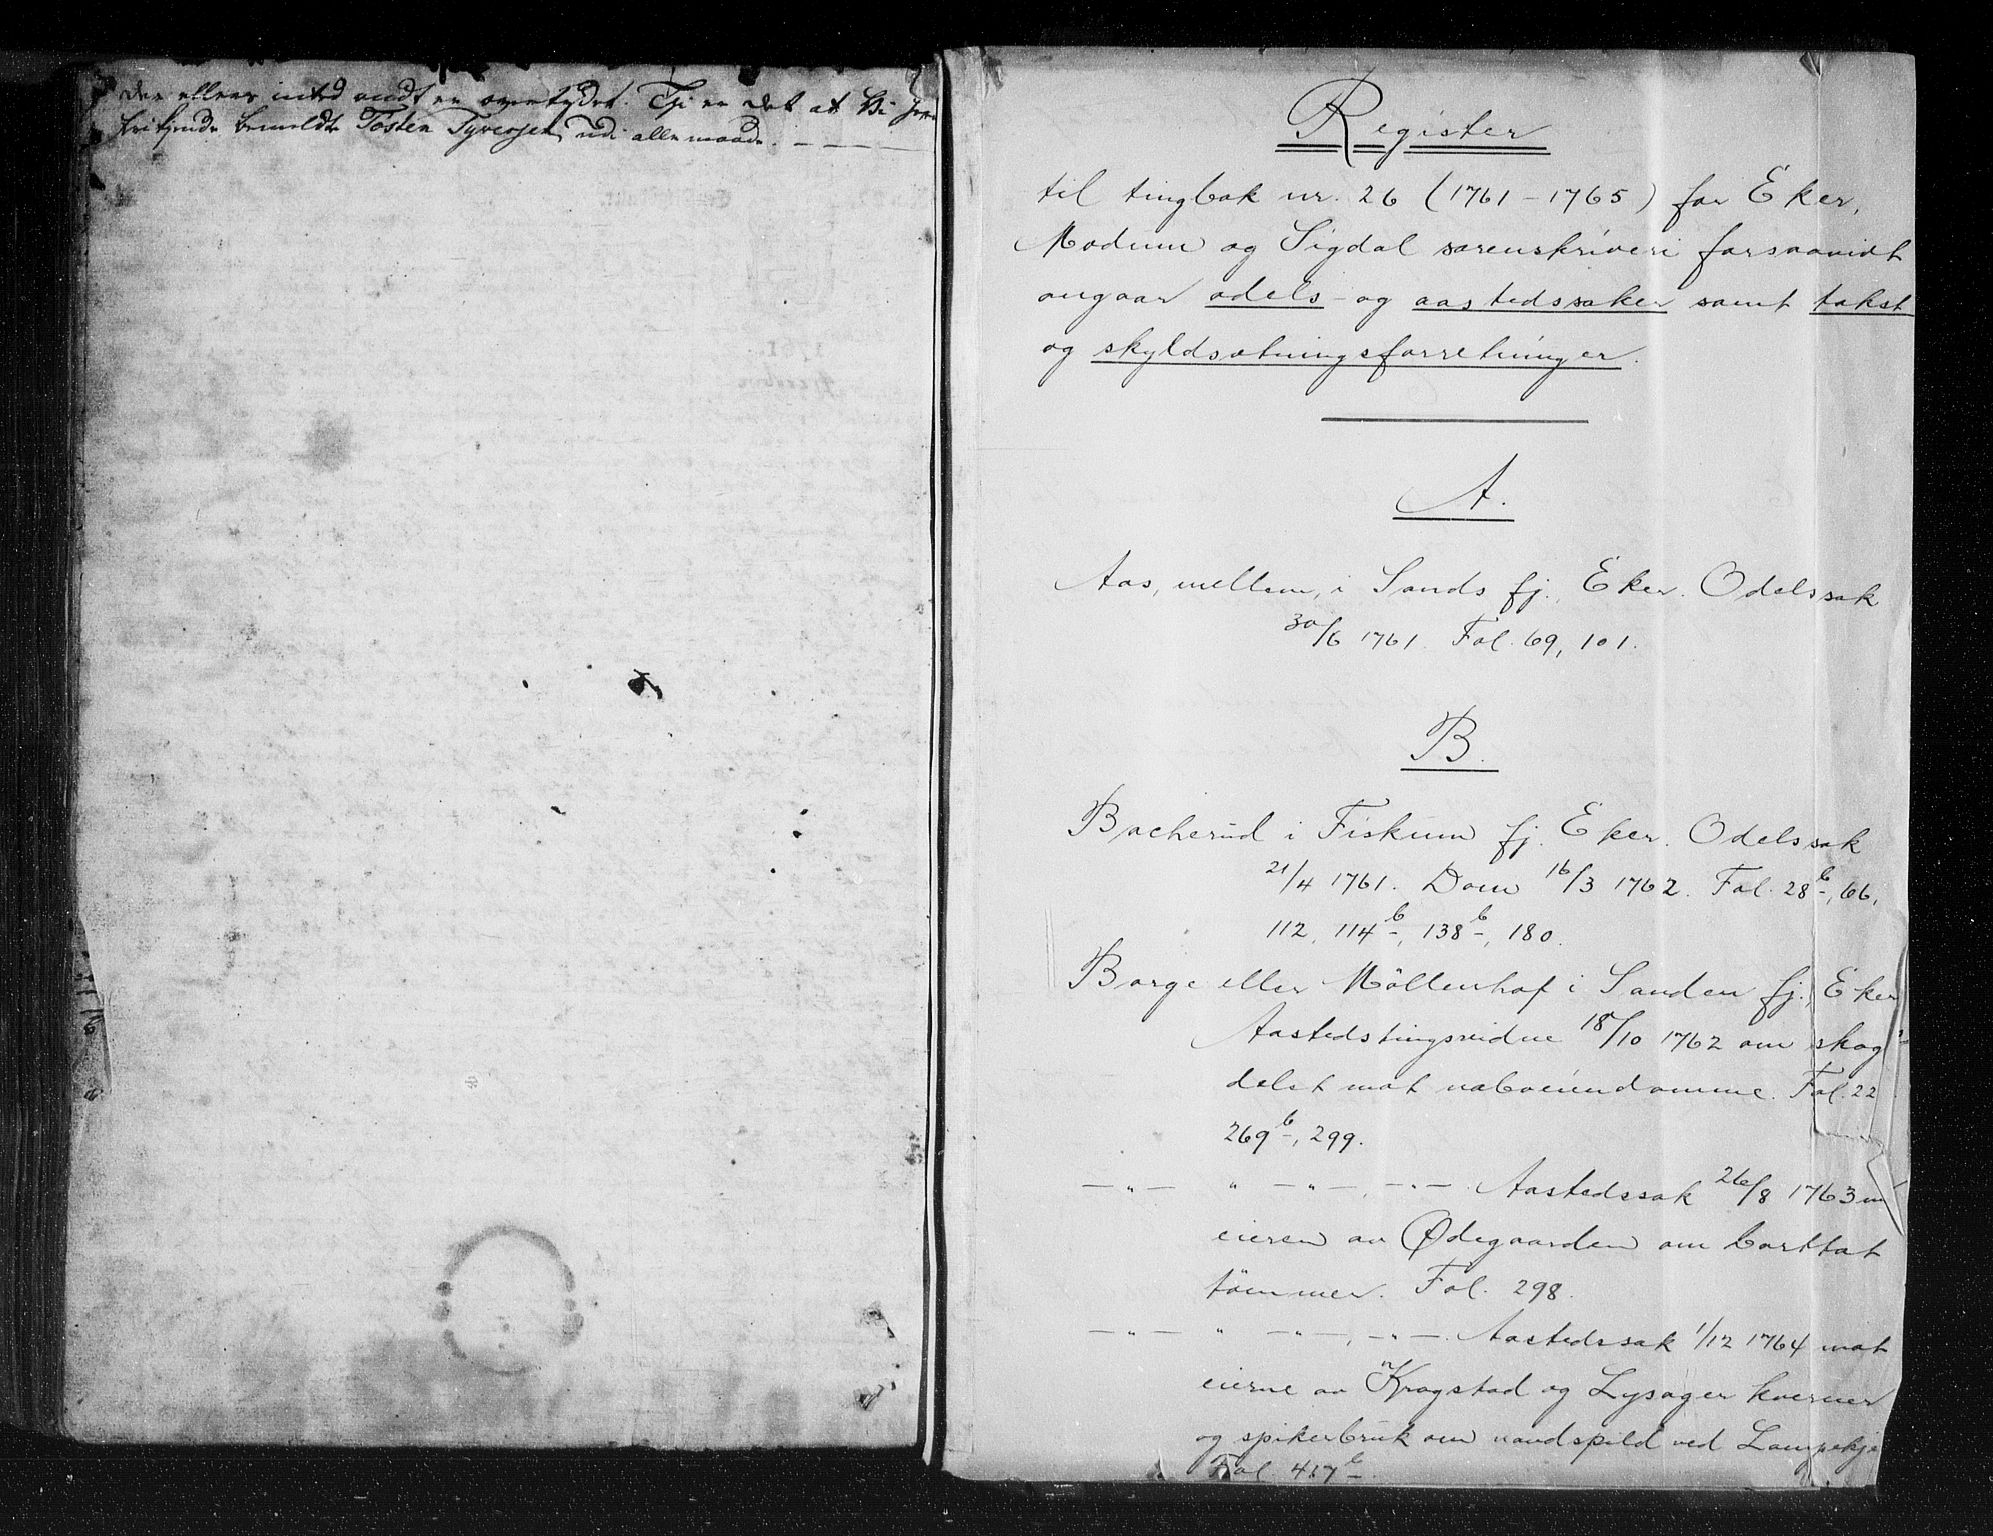 der ellers inted andt er overtydet. Thi er det at Vi
frikjende bemeldte Tosten Tyversen udi alle maade.
Register
til tingbok nr. 26 (1761-1765) for Eker,
Modum og Sigdal sorenskriveri forsaavidt
angaar odels- og aastedssaker samt takst
og skyldsætningsforretninger.
A.
Aas, mellem, i Sands fj. Eker. Odelssak
30/6 1761. Fol. 69, 101.
B.
Bacherud i Fiskum fj. Eker. Odelssak
21/4 1761. Dom 16/3 1762. Fol. 28b, 66,
112, 114b, 138b, 180.
Borge eller Möllenhof i Sanden fj., Eker
Aastedstingsvidne 18/10 1762 om skog
delet mot naboeiendomme. Fol. 22
269b, 299.
—"— " —"—, —"—. Aastedssak 26/8 1763 m
eieren av Ødegaarden om borttat
tömmer. Fol. 298.
—"— " —"—, —"—. Aastedssak 1/12 1764 mot
eierne av Krogstad og Lysager kverner
og spikerbruk om vandspild ved
Fol. 417b.